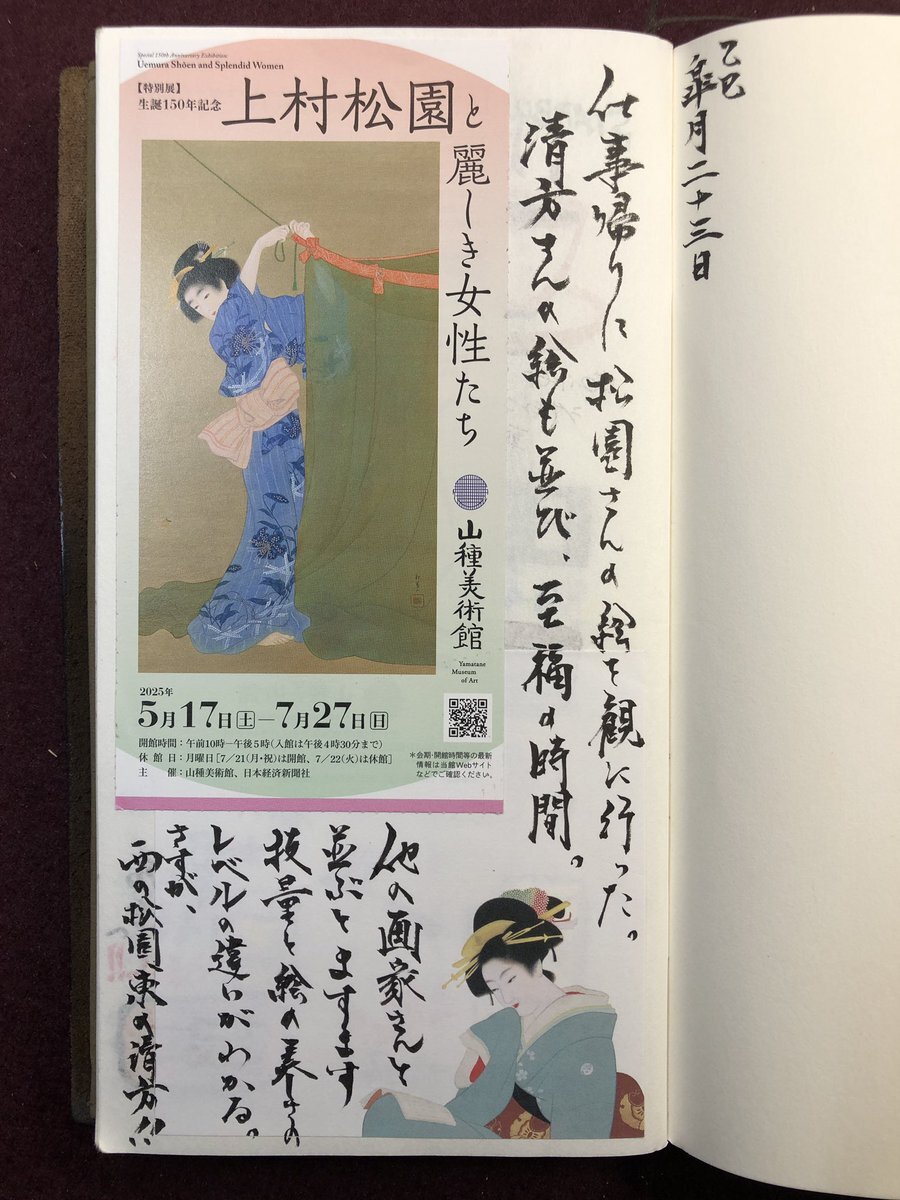 乙巳
皐月二十三日
仕事帰りに松園さんの絵を観に行った。
清方さんの絵も並び、至福の時間。
Special 150th Anniversary Exhibition
Uemura Shōen and Splendid Women
【特別展】
生誕150年記念
上村松園と
麗しき女性たち
山種美術館
Yamatane
Museum
of Art
2025年
5月17日(土)―7月27日(日)
開館時間:午前10時―午後5時(入館は午後4時30分まで)
休館日:月曜日[7/21(月・祝)は開館、7/22(火)は休館]
主催:山種美術館、日本経済新聞社
*会期・開館時間等の最新
情報は当館Webサイト
などでご確認ください。
他の画家さんと
並ぶとますます
技量と絵の美しさの
レベルの違いがわかる。
さすが、
西の松園、東の清方!!